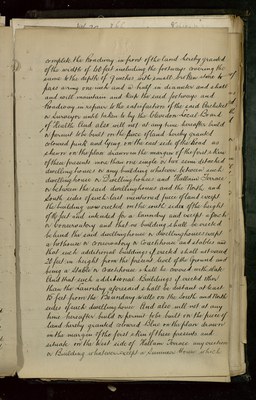 complete the Roadway in front of the land hereby granted
of the width of feet including the footways covering the
same to the depth of inches with small broken stone to
pass a ring one inch and a half in diameter and shall
and will maintain and keep the said footways and
Roadway in repair to the satisfaction of the said Architect
or Surveyor until taken to by the Clevedon Local Board
of Health And also will not at any time hereafter build
or permit to be built on the piece of land hereby granted
coloured pink and lying on the east side of the Road as
shown on the plan drawn in the margin of the first skin
of these presents more than one single or two semi detached
dwellinghouses or any building whatsoever between such
dwellinghouse or Dwellinghouses and Hallam Terrace
or between the said dwellinghouses and the North and
South sides of such last mentioned piece of land except
the building now erected on the south side of the height
of feet and intended for a Laundry and except a porch
or conservatory and that no building shall be erected
behind the said dwellinghouse or dwellinghouses except
a outhouse or conservatory or Coachhouse and stables and
that such additional buildings if erected shall not exceed
20 feet in height from the present level of the Ground and
being a Stable or Coachhouse shall be covered with slate
And that such additional Buildings if erected other
than the Laundry aforesaid shall be distant at least
15 feet from the Boundary walls on the South and North
sides of such dwellinghouse And also will not at any
time hereafter build or permit to be built on the piece of
land hereby granted coloured Blue on the plan drawn
in the margin of the first skin of these presents and
situate on the West side of Hallam Terrace any erection
or Building whatsoever except a Summer House which